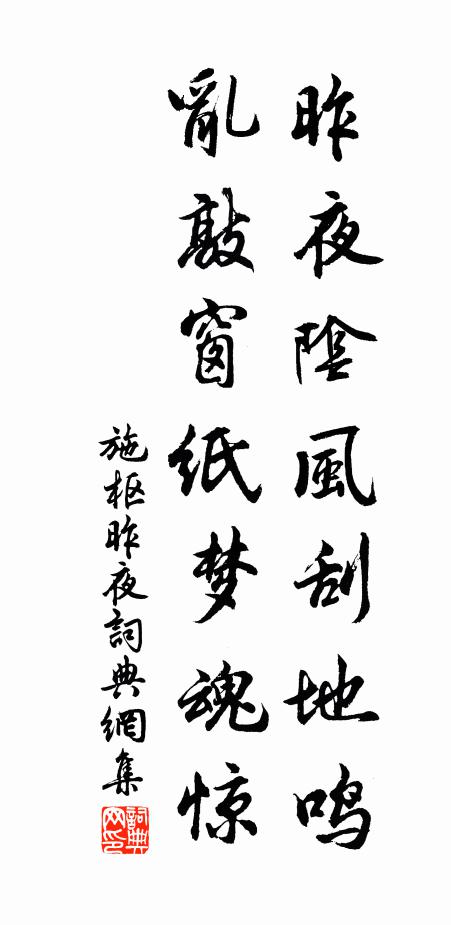 昨夜陰風刮地鸣
亂敲窗纸梦魂惊
施枢昨夜詞典網集
詞典网印